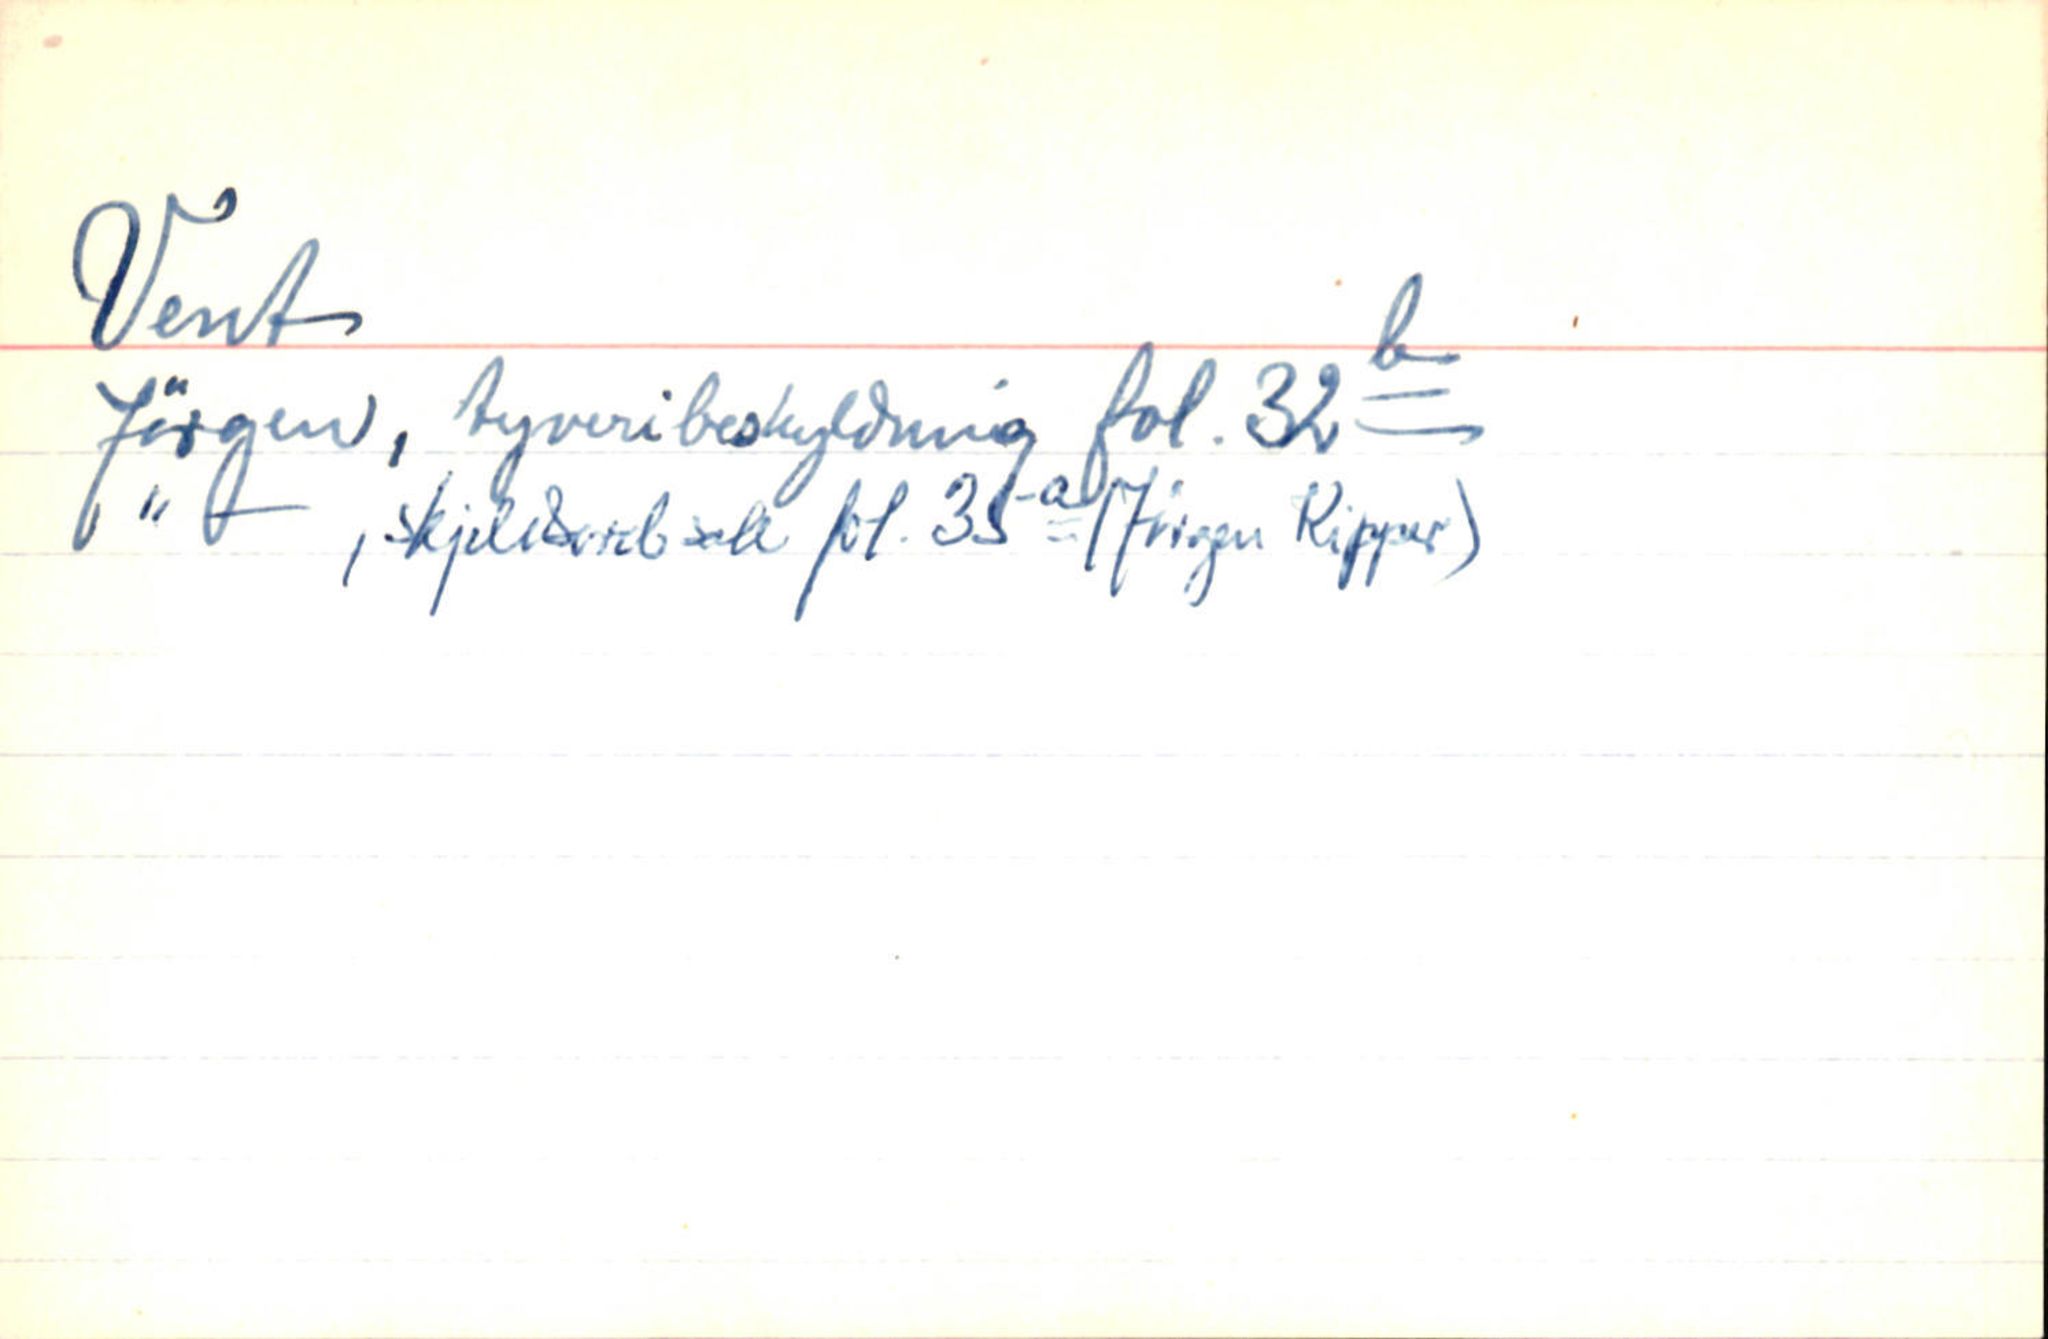 Vent
Jörgen, tyveribeskyldning fol. 32 b
" , skjeldsordsak fol. 35 a (Jörgen Kipper)